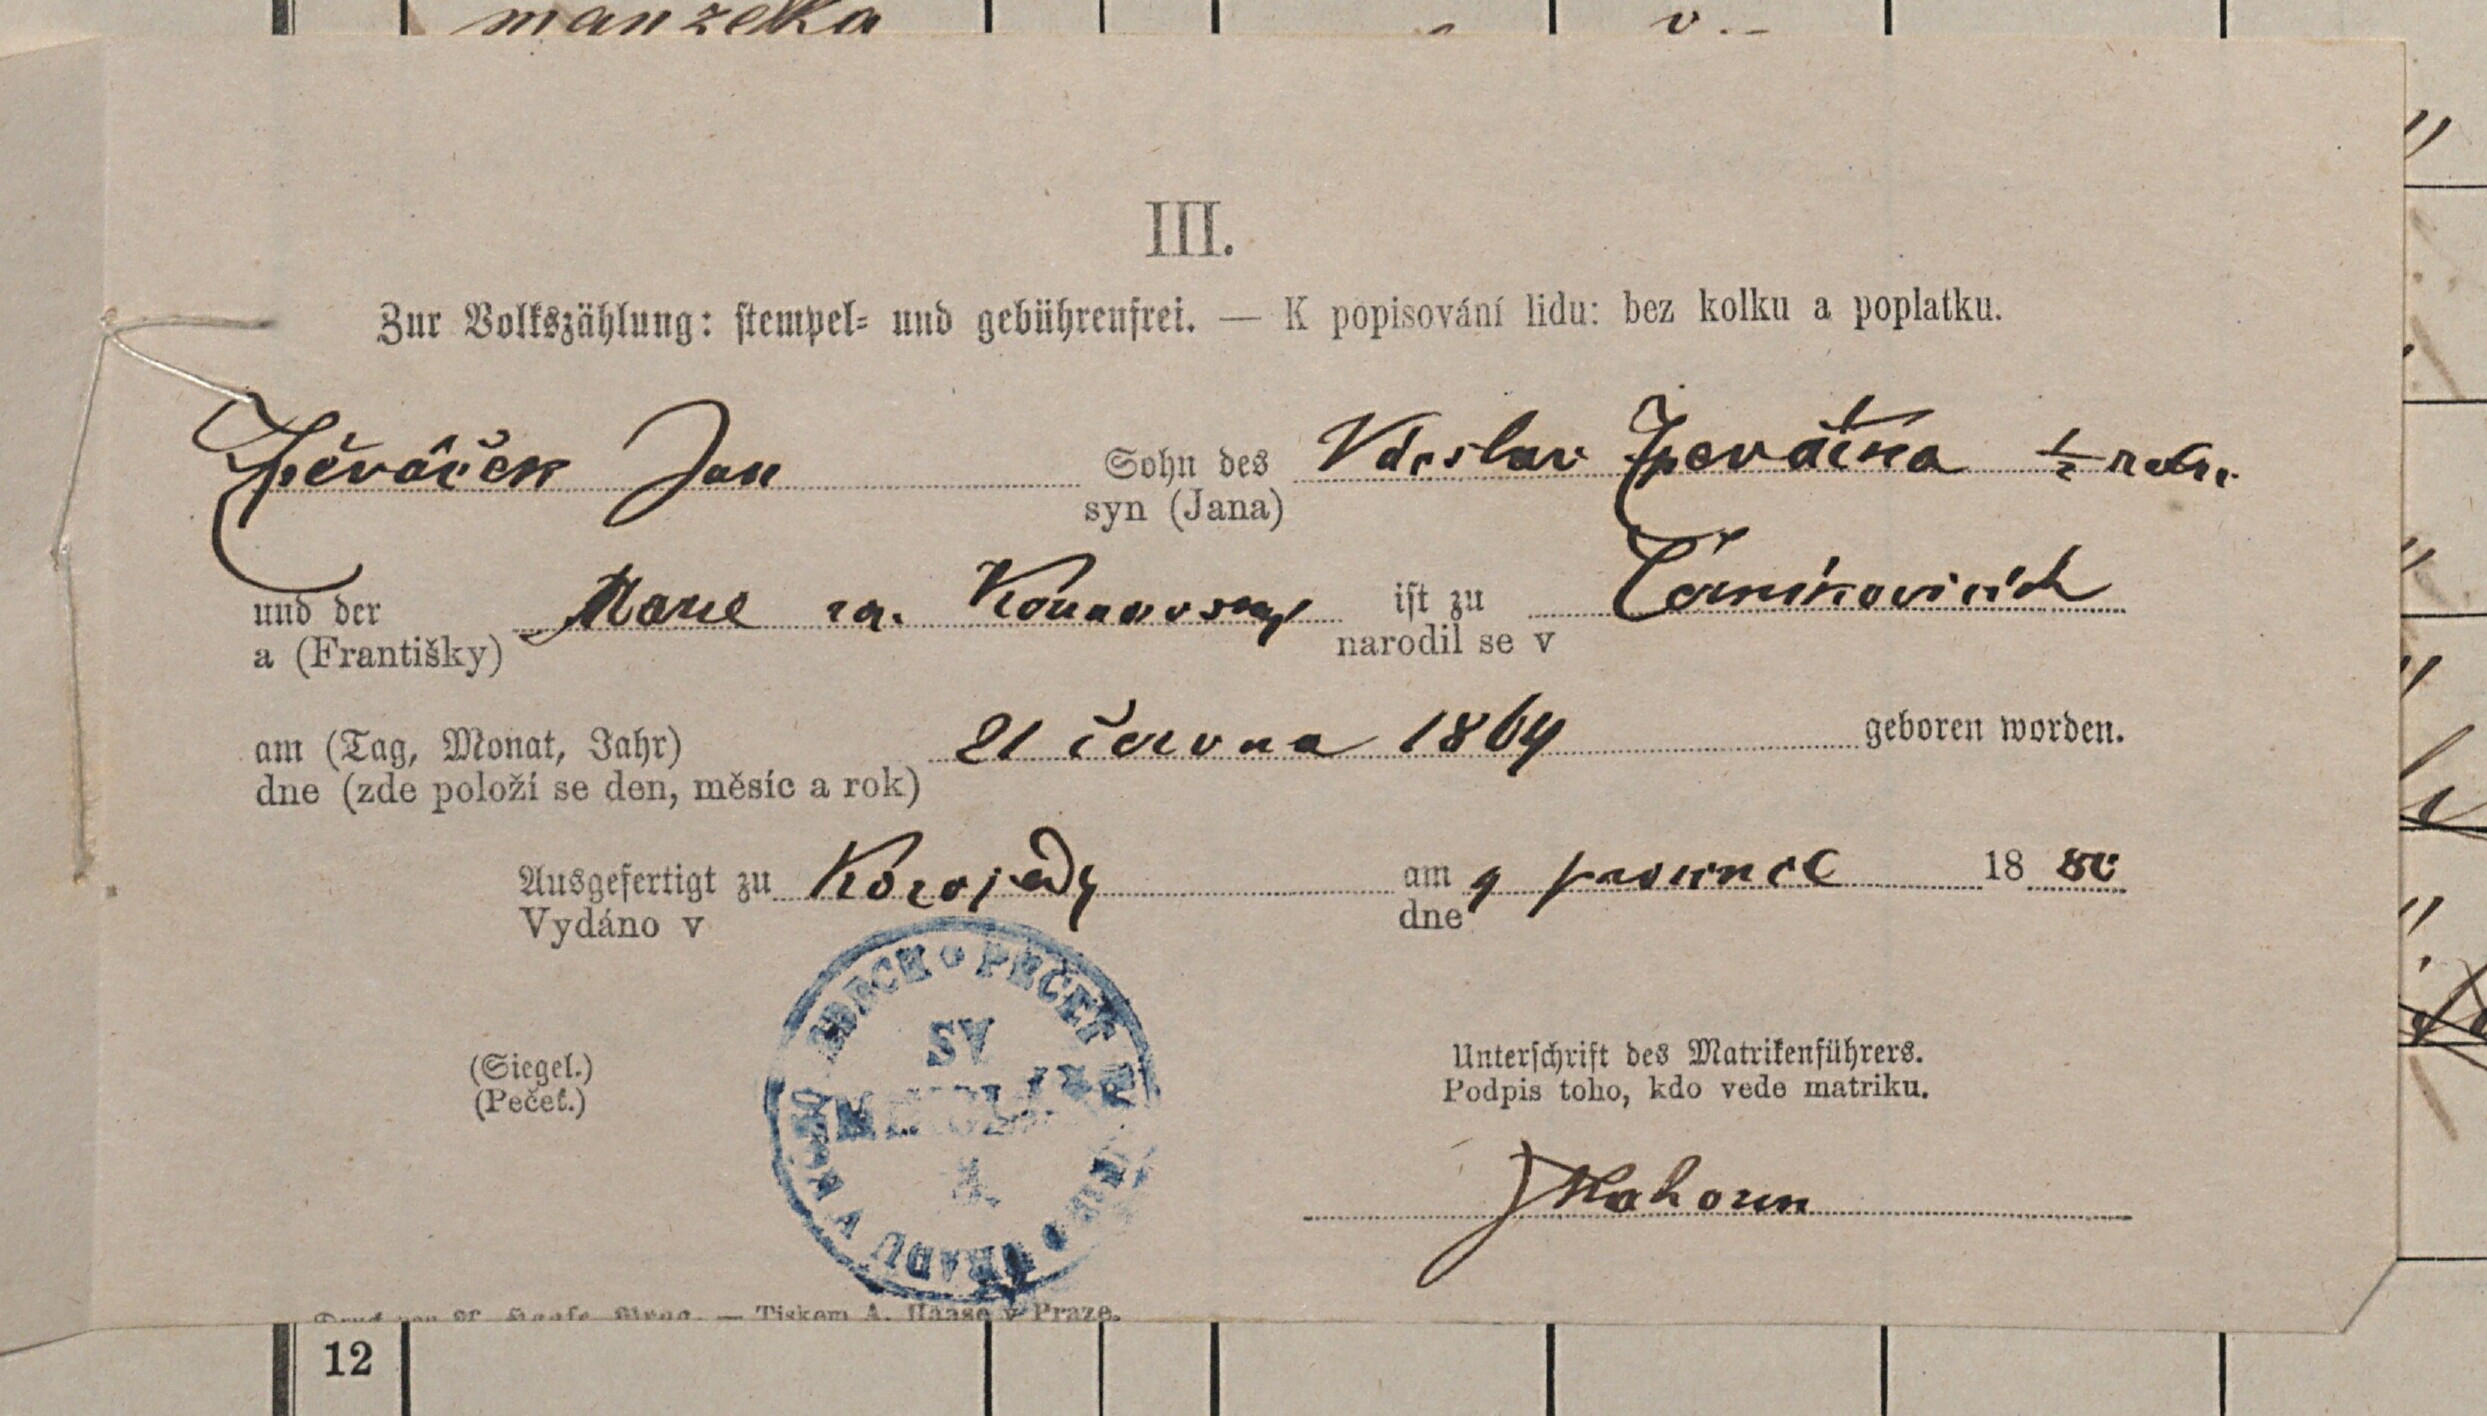 manželka
III.
Zur Volkszählung: stempel- und gebührenfrei. — K popisování lidu: bez kolku a poplatku.
Zpěváček Jan Sohn des Václav Zpěváčka ½
syn (Jana)
und der Marie ist zu
a (Františky) narodil se v
am (Tag, Monat, Jahr) 21 června 1864 geboren worden.
dne (zde položí se den, měsíc a rok)
Ausgefertigt zu Kozojedy am 9 prosince 18 80
Vydáno v dne
PEČEŤ ÚŘADU V
SV
(Siegel.)
(Pečeť.)
Unterschrift des Matrikenführers.
Podpis toho, kdo vede matriku.
Tiskem A. Haase v Praze.
12